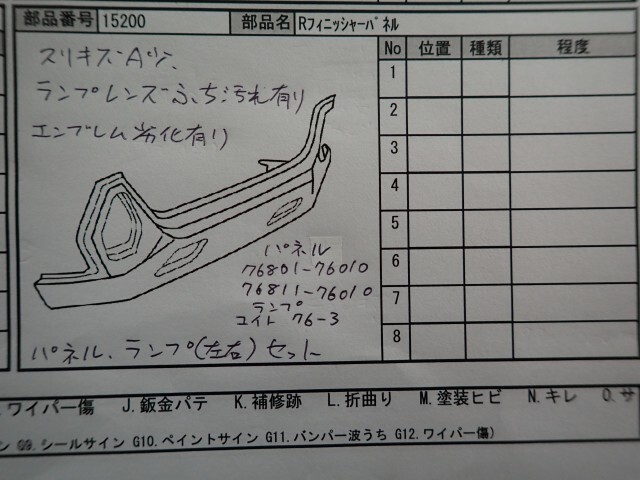 部品番号 15200 部品名 Rフィニッシャーパネル
No 位置 種類 程度
1
2
3
4
5
6
7
8
スリキズA少、
ランプレンズふち汚れ有り
エンブレム劣化有り
パネル
76801-76010
76811-76010
ランプ
コイト 76-3
パネル、ランプ(左右)セット
.ワイパー傷 J.鈑金パテ K.補修跡 L.折曲り M.塗装ヒビ N.キレ O.サ
ン G9.シールサイン G10.ペイントサイン G11.バンパー波うち G12.ワイパー傷)